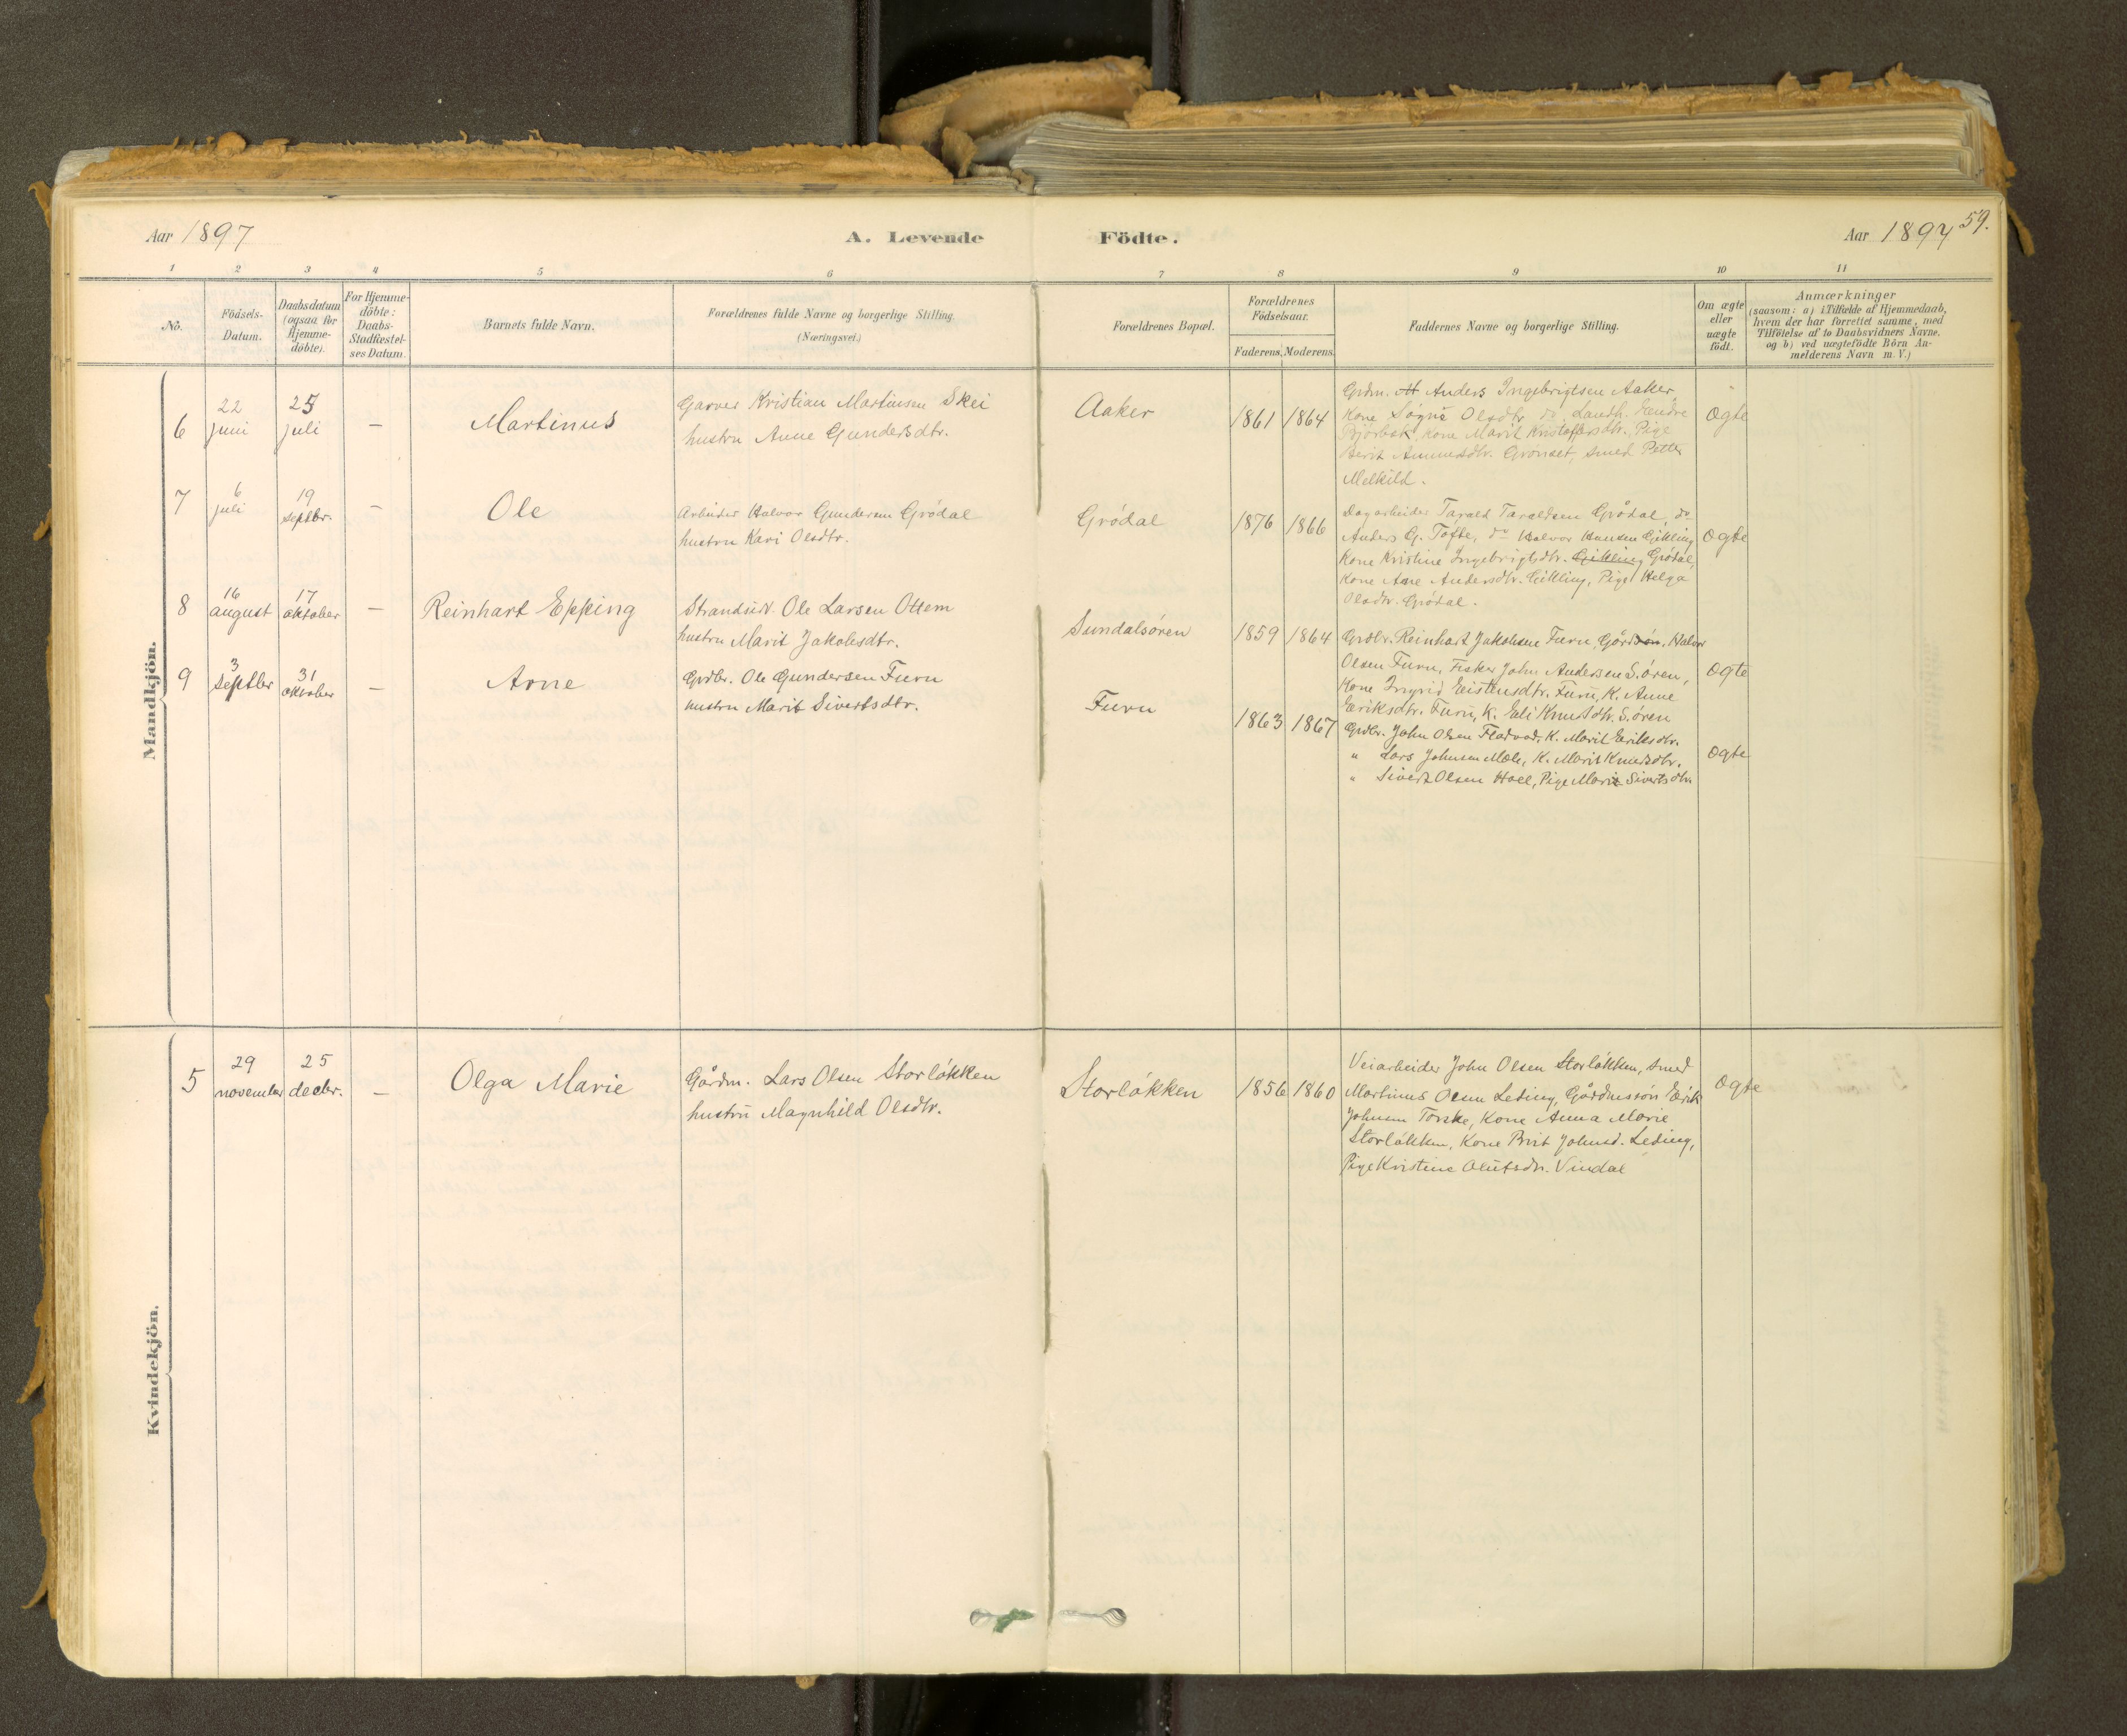 Aar 1897
A. Levende Födte.
Aar 1897
59.
1 2 3 4 5 6 7 8 9 10 11
No.
Födsels-
Datum.
Daabsdatum
(ogsaa for
Hjemme-
döbte).
For Hjemme-
döbte:
Daabs-
Stadfestel-
ses Datum.
Barnets fulde Navn.
Forældrenes fulde Navne og borgerlige Stilling.
(Næringsvei.)
Forældrenes Bopæl.
Forældrenes
Födselsaar.
Faderens. Moderens.
Faddernes Navne og borgerlige Stilling.
Om ægte
eller
uægte
födt.
Anmærkninger
(saasom: a) i Tilfælde af Hjemmedaab,
hvem der har forrettet samme, med
Tilföielse af to Daabsvidners Navne,
og b) ved uægtefödte Börn An-
melderens Navn m. V.)
Mandkjön.
6
22
juni
25
juli
—
Martinus
Garver Kristian Martinsen Skei
hustru Anne Gundersdtr.
Aaker
1861 1864
Grdm. Anders Ingebrigtsen Aaker,
Kone Olsdtr. do, Landh. Endre
Kone Marit Kristoffersdtr., Pige
Berit Grønset, Smed Petter
Melkild.
Ogte
7
6
juli
19
septbr.
—
Ole
Arbeider Halvor Gundersen Grödal
hustru Kari Olsdtr.
Grödal
1876 1866
Dagarbeider Tarald Taraldsen Grödal, do
Anders G. Tofte, do Halvor Hansen Gikling
Kone Kristine Ingebrigtsdtr. Gikling Grödal,
Kone Ane Andersdtr. Gikling, Pige Helga
Olsdtr. Grödal.
Ogte
8
16
august
17
oktober
—
Reinhart Epping
Strandsid. Ole Larsen Ottem
hustru Marit Jakobsdtr.
Sundalsören
1859 1864
Grdbr. Reinhart Jakobsen Furu, Halvor
Olsen Furu, Fisker John Andersen S.ören,
Kone Ingrid Eistensdtr. Furu, K. Anne
Eriksdtr. Furu, K. Eli Knutsdtr. S.ören
Ogte
9
3
septbr
31
oktober
—
Arne
Grdbr. Ole Gundersen Furu
hustru Marit Sivertsdtr.
Furu
1863 1867
Grdbr. John Olsen Fladvad, K. Marit Eriksdtr.
" Lars Johnsen Mæle, K. Marit Knutsdtr.
" Sivert Olsen Hoel, Pige Marit Sivertsdtr.
Ogte
Kvindekjön.
5
29
november
25
decbr.
—
Olga Marie
Gårdm. Lars Olsen Storlökken
hustru Magnhild Olsdtr.
Storlökken
1856 1860
Veiarbeider John Olsen Storlökken, Smed
Martinus Olsen Leding, Gårdmssön Eirik
Johnsen Torske, Kone Anna Marie
Storlökken, Kone Brit Johnsd. Leding,
Pige Kristine Olufsdtr. Vindal
Ogte